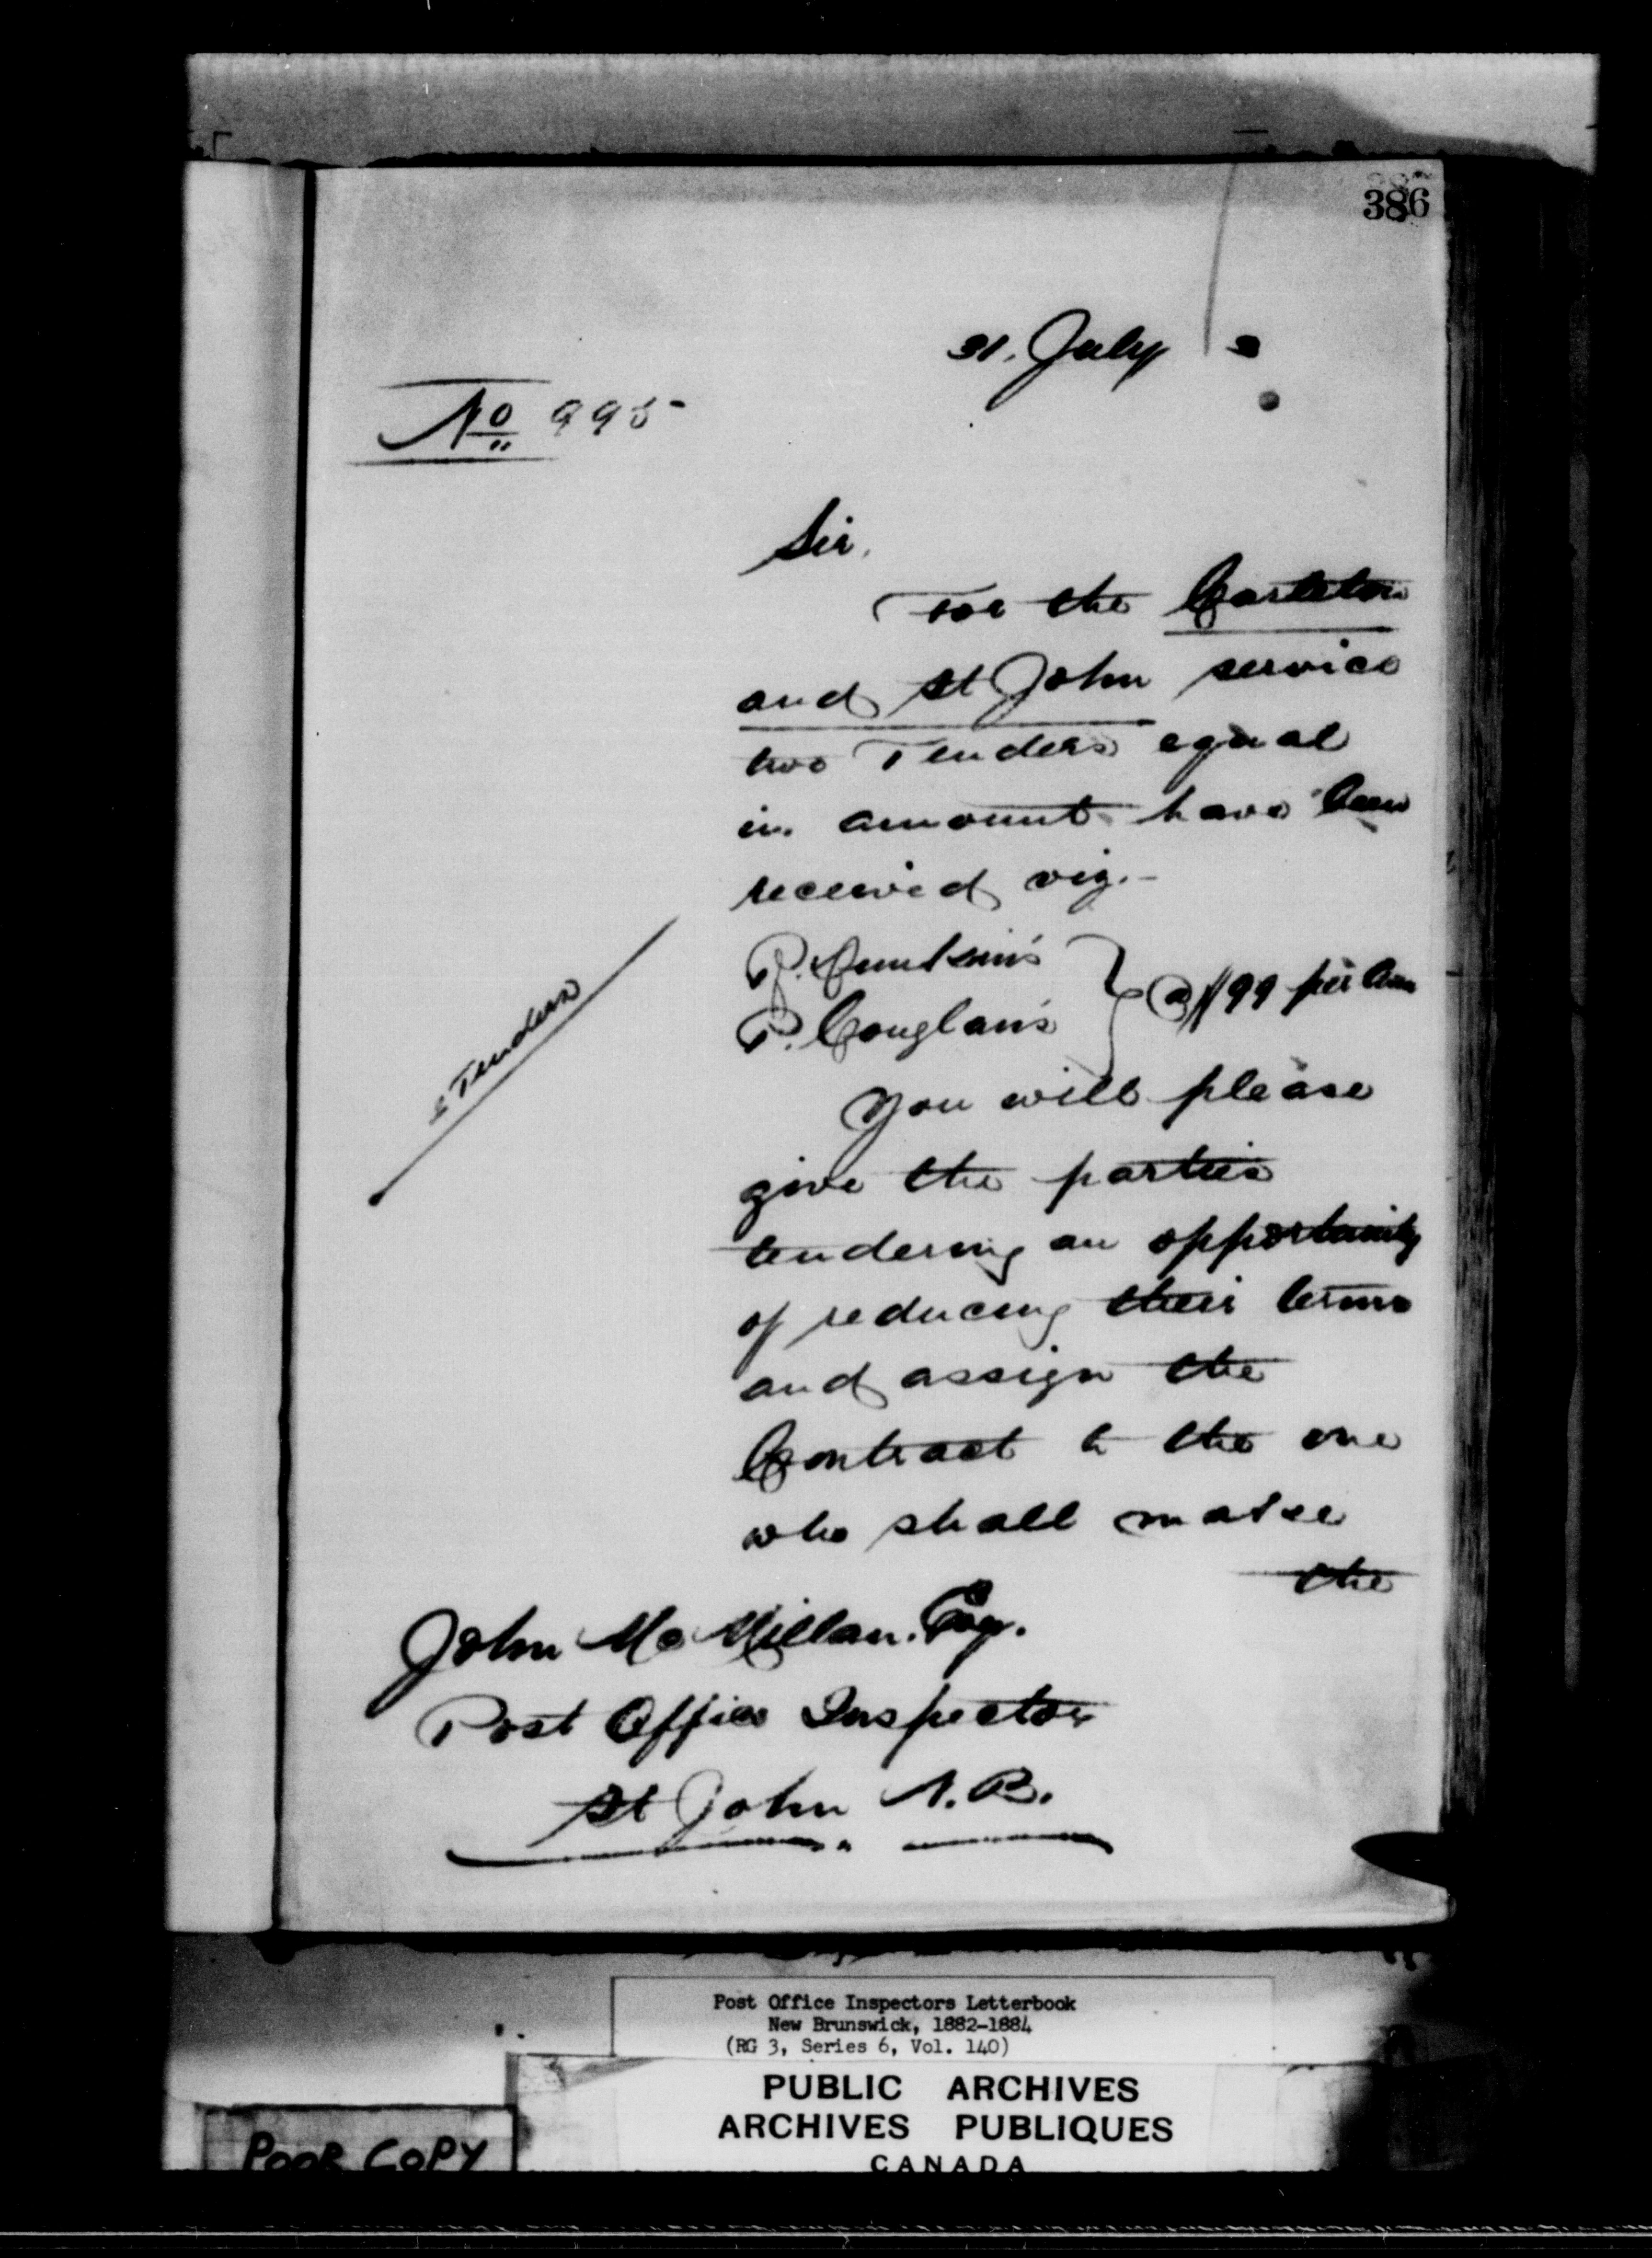 386
31. July 3
No 995
Sir,
For the Carleton
and St John service
two Tenders equal
in amount have been
received viz.-
P.
P. Couglan's } @ $99 per Ann
Tenders
You will please
give the parties
tendering an opportunity
of reducing their terms
and assign the
Contract to the one
who shall make
the
John McMillan. Esqr.
Post Office Inspector
St John N.B.
Post Office Inspectors Letterbook
New Brunswick, 1882-1884
(RG 3, Series 6, Vol. 140)
PUBLIC ARCHIVES
ARCHIVES PUBLIQUES
CANADA
POOR COPY